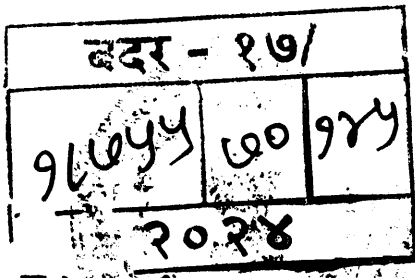 बदर - १७/
१८७५५ ७० १४५
२०२४